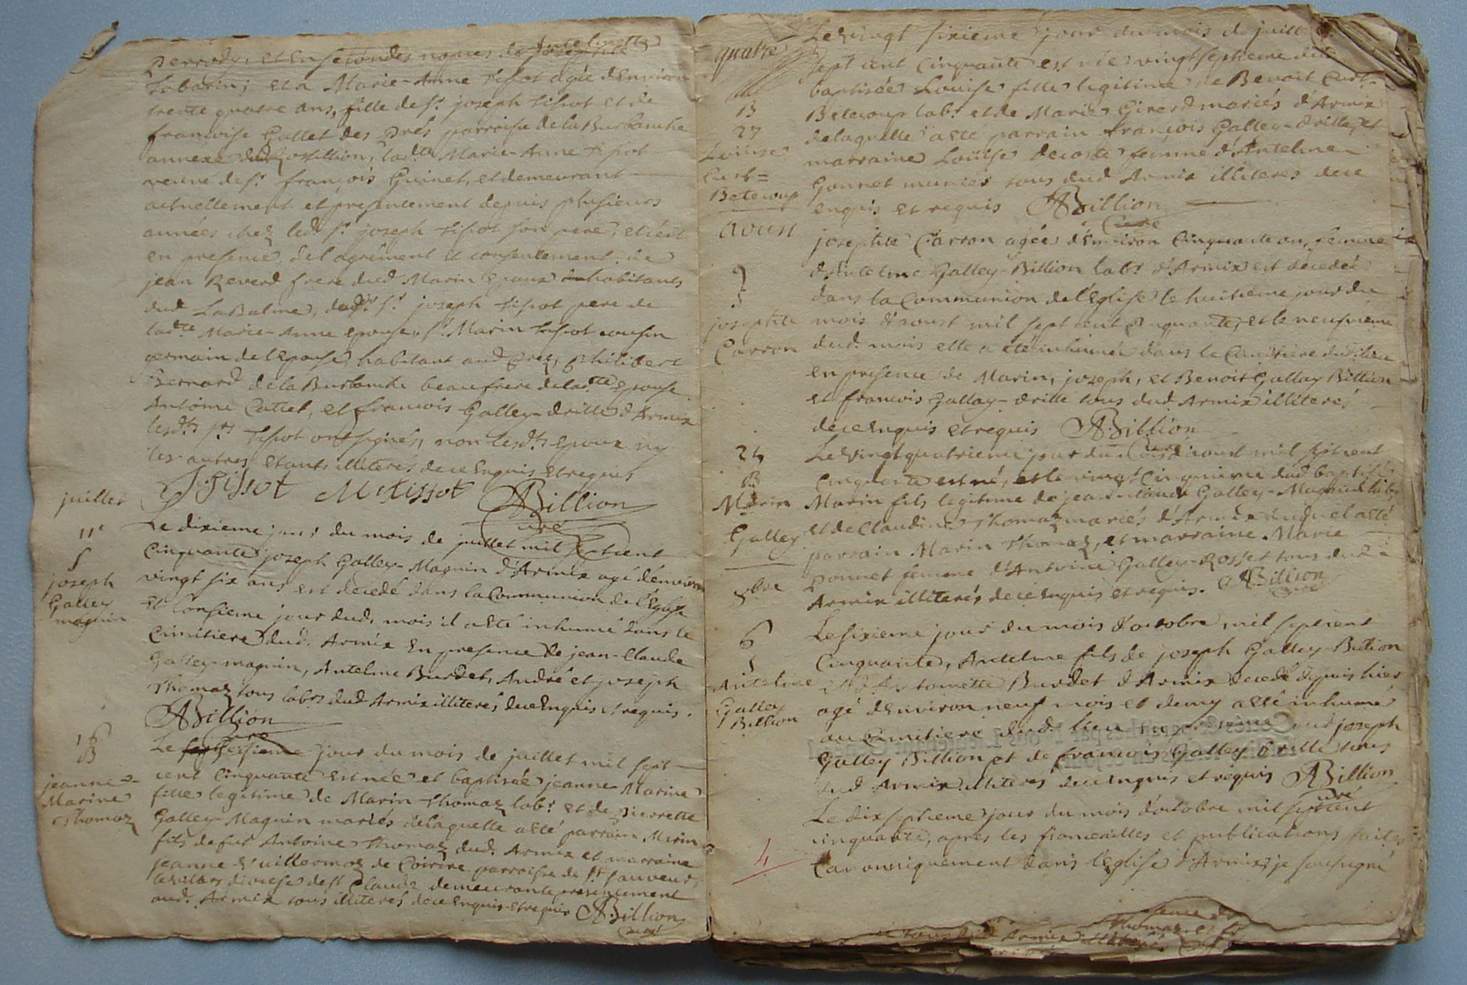 et en secondes noces de Anthelmette
Tabarin; et a Marie-Anne Tissot agée d'environ
trente quatre ans, fille de Sr. joseph Tissot et de
francoise Gallet des Prés parroisse de la Burbanche
annexe de Rossillion, ladte Marie-Anne Tissot
veuve de Sr. françois Guinet, et demeurant
actuellement et presentement depuis plusieurs
années chez ledt Sr. joseph Tissot son pere, et c'est
en presence, de l'agrément et consentement de
jean Reverd frere dud Marin Epoux habitants
dud La Balme, dudt Sr. joseph Tissot pere de
ladte Marie-Anne epouse, Sr. Marin Tissot cousin
germain de l'Epouse habitant aud Prez, Philibert
Bernard de la Burbanche beaufrere de ladte Epouse
Antoine Cattet, et francois Galley-drille d'Armix
lesdts Srs Tissot ont signés, non lesdts Epoux ny
les autres etants illiteres de ce Enquis et requis
J. Tissot M. Tissot ABillion
curé
juillet
11e
S
joseph
Galley
magnin
Le dixieme jour du mois de juillet mil sept cent
Cinquante joseph Galley-Magnin d'Armix agé d'environ
vingt six ans est decedé dans la Communion de l'Eglise
Et l'onsieme jour dud. mois il a esté inhumé dans le
Cimitiere dud. Armix En presence de jean-Claude
Galley-magnin, Antelme Burdet, André et joseph
Thomaz tous labrs dud Armix illiterés de ce Enquis et requis.
ABillion
curé
16
B
jeanne=
Marine
Thomaz
Le seizieme jour du mois de juillet mil sept
cent Cinquante est née et baptisée jeanne-Marine
fille legitime de Marin Thomaz labr. et de Pierrette
Galley-Magnin mariés delaquelle a esté parrain Marin
fils de fut Antoine Thomaz dud. Armix et marraine
jeanne Vuillermoz de Coirre parroisse de St sauveur
diocese de St Claude demeurante presentement
aud. Armix tous illiteres de ce Enquis et requis ABillion
curé
quatre
B
27
Loüise
Curt=
Betecoup
Le vingt sixieme jour du mois de juillet
sept cent Cinquante est née vingt septieme dud
baptisée Loüise fille legitime de Benoit Curt
Betecoup labr. et de Marie Girerd mariés d'Armix
delaquelle a esté parrain françois Galley-drille, et
marraine Loüise decoste femme d'Antelme
Gonnet mariés tous dud Armix illiteres de ce
enquis et requis ABillion
curé
aoust
9
S
josephte
Carron
josephte Carron agée d'Environ Cinquante ans, femme
d'Antelme Galley-Billion labr. d'Armix est decedée
dans la Communion de l'Eglise le huitieme jour du
mois d'aoust mil sept cent cinquante, et le neufvieme
dud. mois elle a été inhumée dans le Cimitiere dud lieu
en presence de Marin, joseph, et Benoit Galley Billion
et françois Galley-drille tous dud Armix illiterés
de ce Enquis et requis ABillion
curé
24
B
Marin
Galley
Le vingt quatrieme jour du mois d'aoust mil sept cent
Cinquante est né, et le vingt Cinquieme dud baptisé
Marin fils legitime de jean-Claude Galley-Magnin labr
et de Claudine Thomaz mariés d'Armix duquel a esté
parrain Marin Thomaz, et marraine Marie
Ponnet femme d'Antoine Galley-Rosset tous dud
Armix illiterés de ce Enquis et requis. ABillion
curé
8bre
6
S
Antelme
Galley
Billion
Le sixieme jour du mois d'octobre mil sept cent
Cinquante, Antelme fils de joseph Galley-Billion
tomette Burdet d'Armix decedé depuis hier
agé d'Environ neuf mois et demy a esté inhumé
au Cimitiere dud. lieu en presence dud joseph
Galley Billion et de françois Galley drille tous
dud Armix illiterés de ce enquis et requis ABillion
curé
4
Le dix septieme jour du mois d'octobre mil sept cent
cinquante, apres les fiancailles et publications faites
Canoniquement dans l'Eglise d'Armix je soussigné